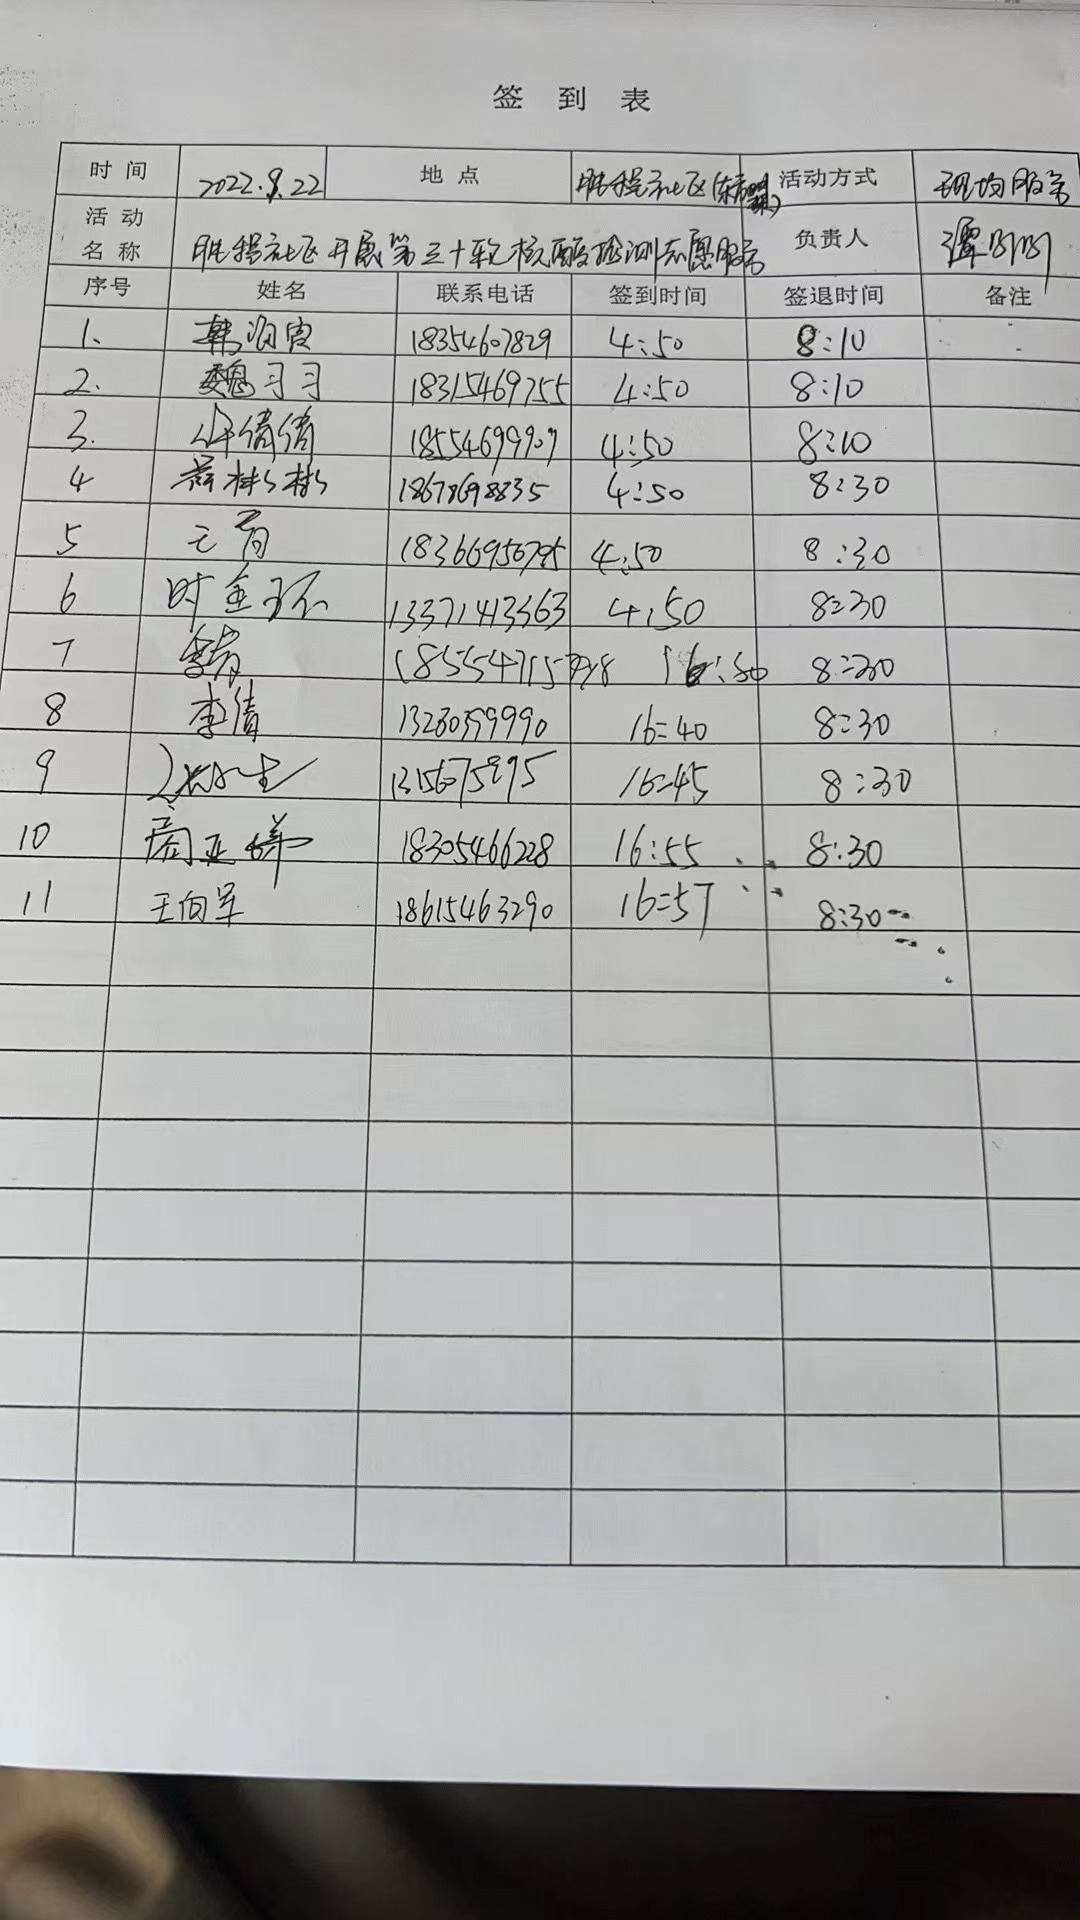 签 到 表
时 间 2022.9.22 地 点 胜程社区 活动方式 现场服务
活 动 名 称 胜程社区开展第三十轮核酸检测志愿服务 负责人 谭
序号 姓名 联系电话 签到时间 签退时间 备注
1. 韩 18354607829 4:50 8:10
2. 魏习习 18315469755 4:50 8:10
3. 倩倩 18554699907 4:50 8:10
4 彬彬 18678698835 4:50 8:30
5 18366956795 4:50 8:30
6 时金环 13371413363 4:50 8:30
7 16:50 8:30
8 李倩 16:40 8:30
9 16:45 8:30
10 18305466228 16:55 8:30
11 王向军 18615463290 16:57 8:30